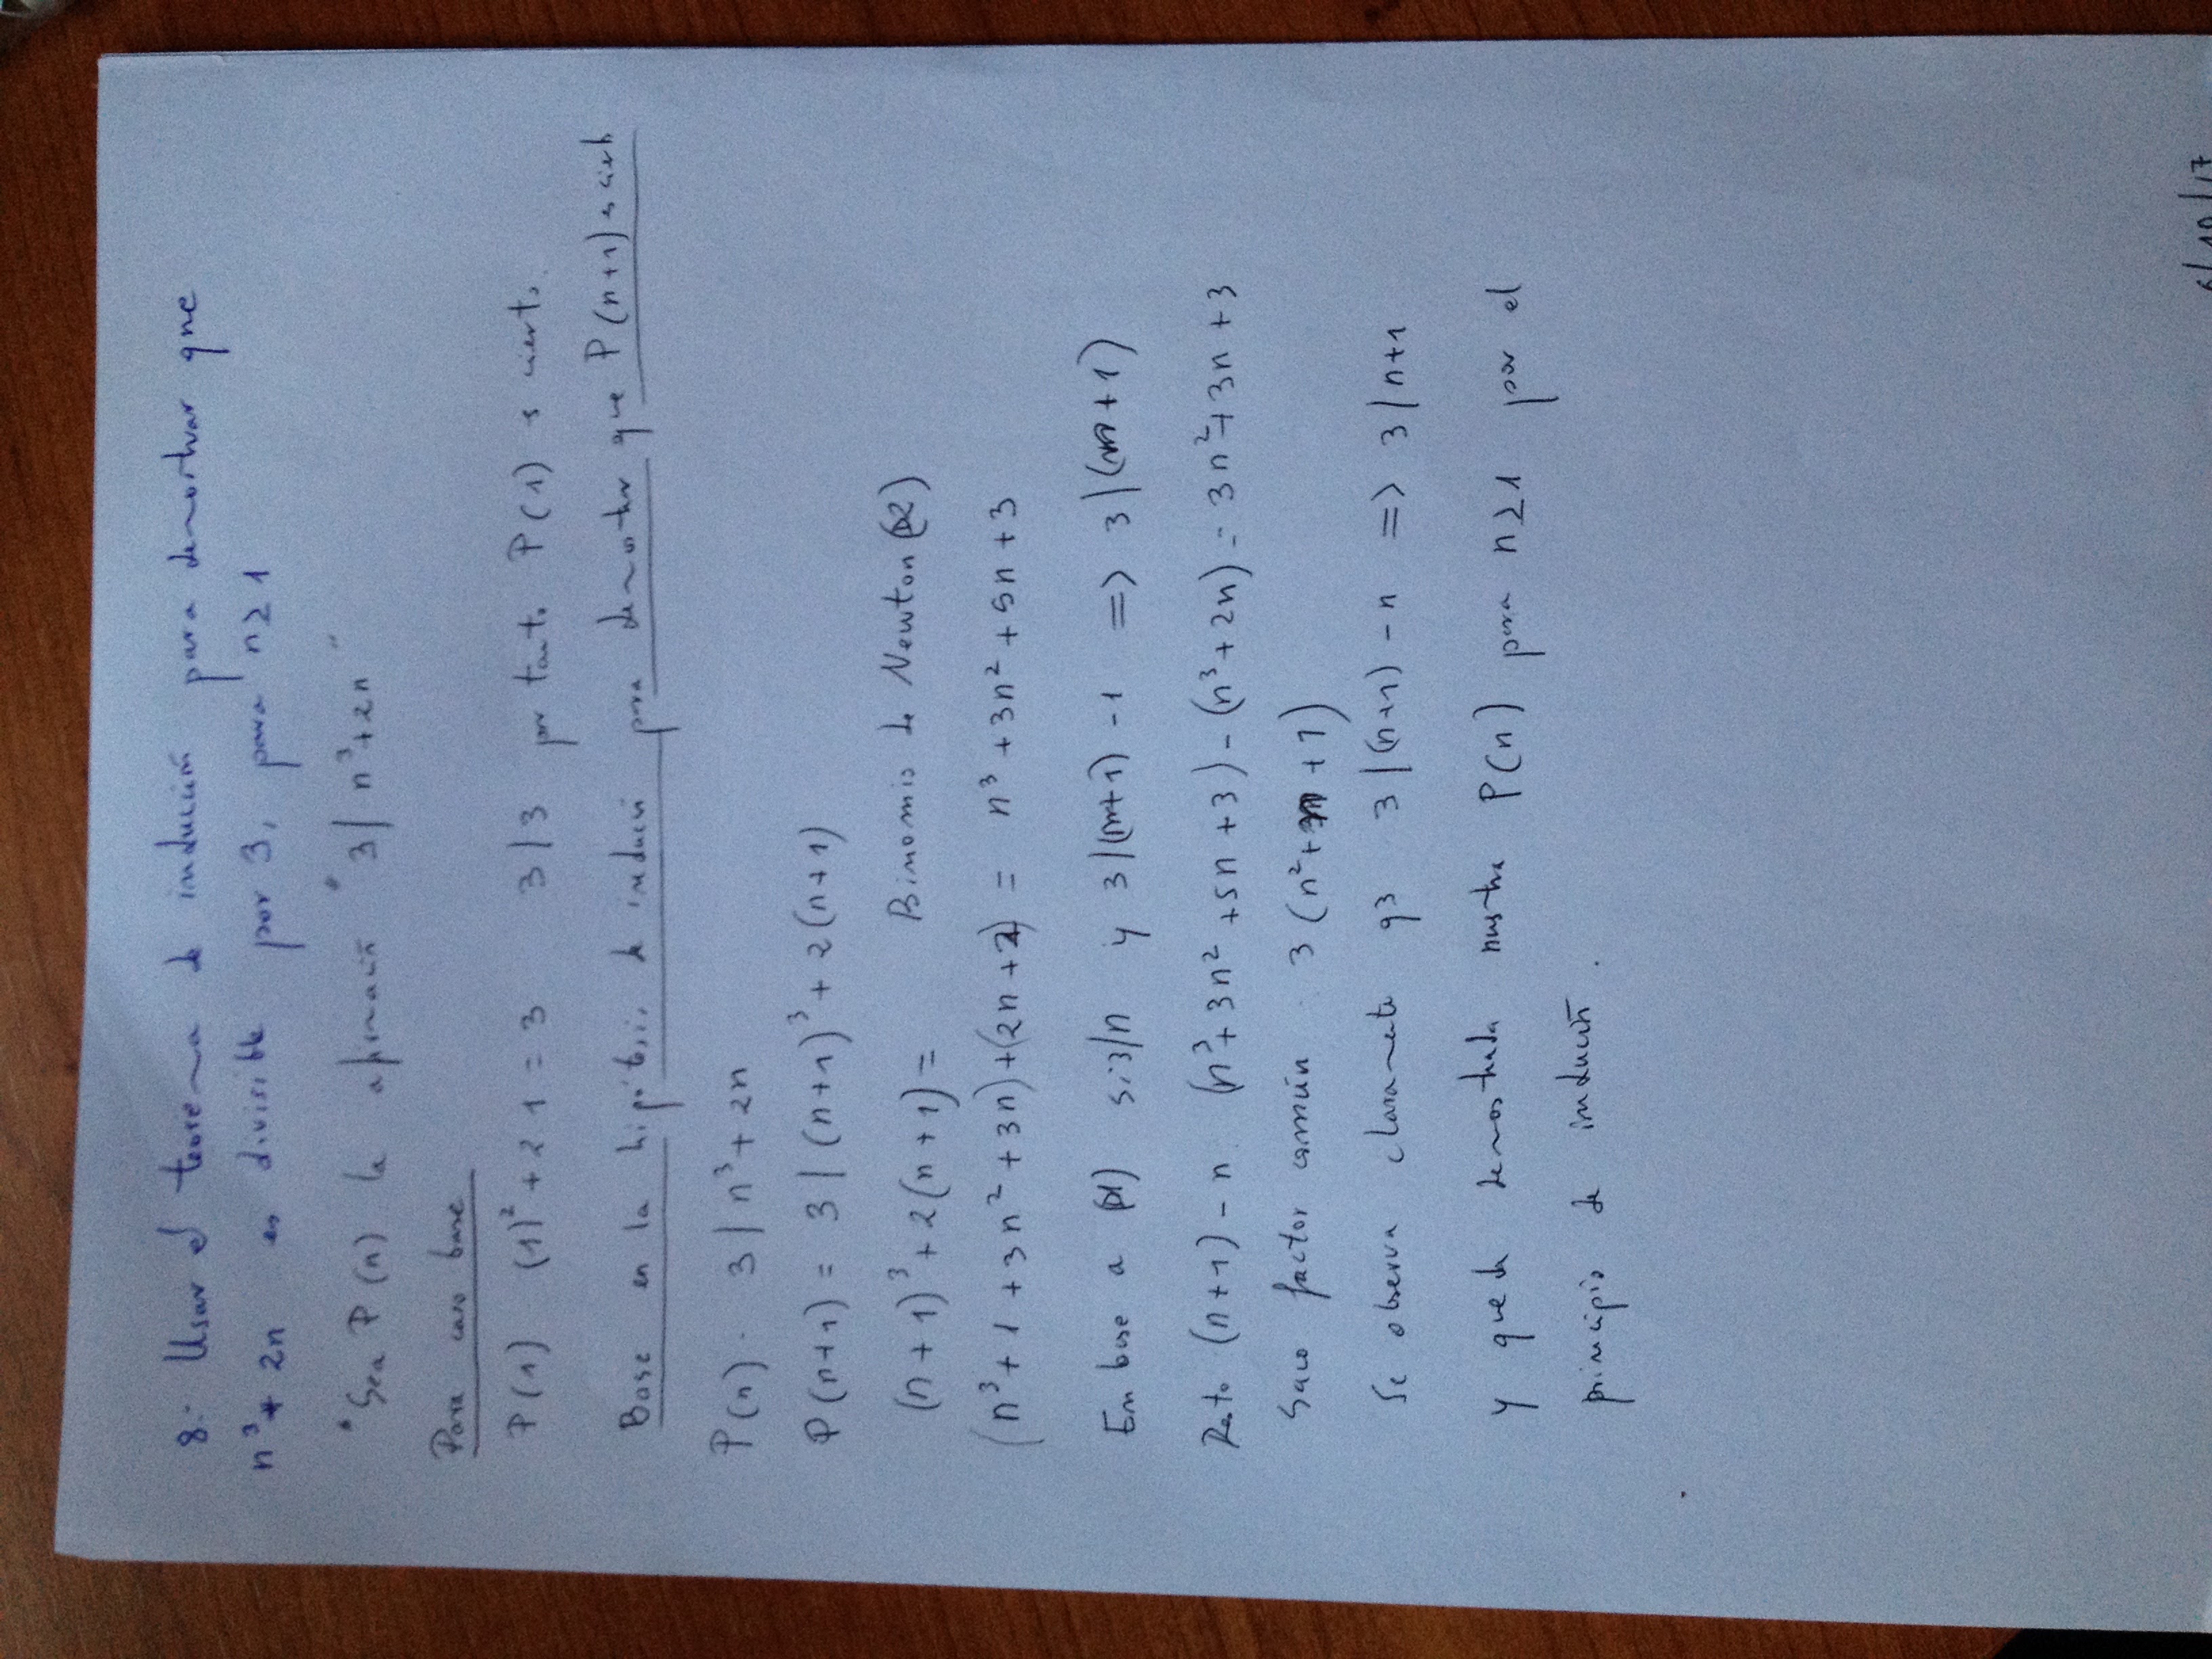 8.- Usar el teorema de inducción para demostrar que
n³ + 2n es divisible por 3, para n ≥ 1
"Sea P(n) la afirmación "3 | n³+2n"
Para caso base
P(1) (1)² + 2 1 = 3 3|3 por tanto P(1) es cierto.
Base en la hipótesis de inducción para demostrar que P(n+1) es cierto
P(n). 3 | n³ + 2n
P(n+1) = 3 | (n+1)³ + 2(n+1)
(n+1)³ + 2(n+1) = Binomio de Newton (2)
(n³ + 1 + 3n² + 3n) + (2n + 2) = n³ + 3n² + 5n + 3
En base a (1) si 3/n y 3 | (n+1) - 1 => 3 | (n+1)
Resto (n+1) - n. (n³ + 3n² + 5n + 3) - (n³ + 2n) = 3n² + 3n + 3
Saco factor común . 3 (n² + n + 1)
Se observa claramente q 3 | (n+1) - n => 3 | n+1
y queda demostrada nuestra P(n) para n ≥ 1 por el
principio de inducción.
6/10/17